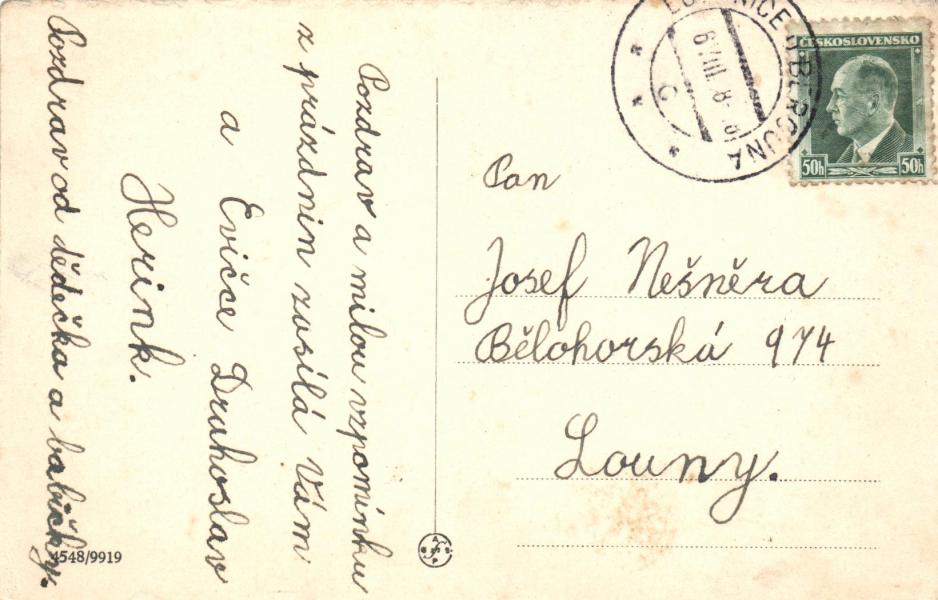 Pozdrav a milou vzpomínku
z prázdnin zasílá Vám
a Evičce Druhoslav
Herink.
Pozdrav od dědečka a babičky.
4548/9919
ČESKOSLOVENSKO
50h 50h
Pan
Josef Nešněra
Bělohorská 974
Louny.